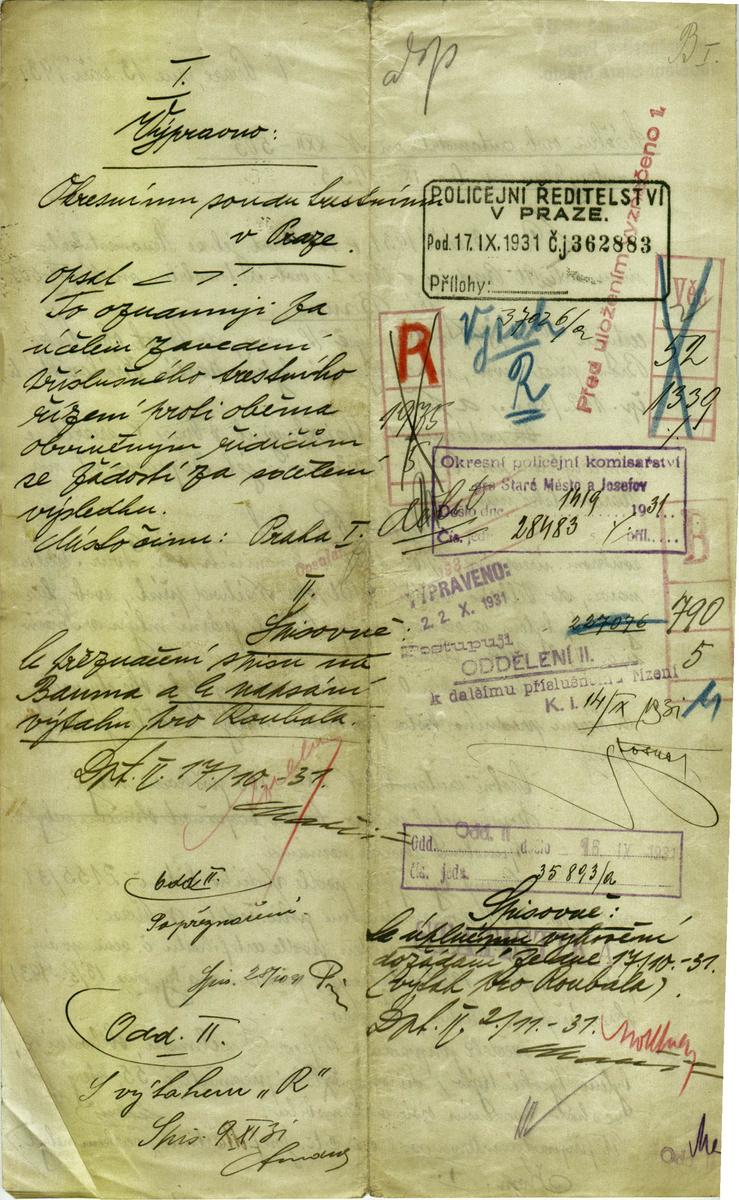 I.
Výpravno:
Okresnímu soudu trestnímu
v Praze.
opsat < > !
To oznamuji za
účelem zavedení
příslušného trestního
řízení proti oběma
obviněným řidičům
se žádostí za sdělení
výsledku.
Místo činu: Praha I.
II.
Spisovně
k přeznačení spisu na
Bauma a k napsání
výtahu pro Roubala.
Dpt. II. 17/10.-31.
Odd II.
Po přeznačení
Spis. 28/10 31
Odd. II.
S výtahem „R"
Spis. 9/XI 31
B I.
POLICEJNÍ ŘEDITELSTVÍ
V PRAZE.
Pod. 17. IX. 1931 č.j 362883
Přílohy:
Před uložením vyznačeno 1.
37026/a
Výtah
R
R
1935
5
Vč
52
1339
Okresní policejní komisařství
pro Staré Město a Josefov
Došlo dne 14/9 1931
Čís. jedn. 28483 příl.
B
790
5
VYPRAVENO:
2 2. X. 1931
227076
Postupuji
ODDĚLENÍ II.
k dalšímu příslušnému řízení
K. I. 14/IX 1931
Odd. II
Odd. došlo 16. IX 1931
čís. jedn. 35893/a
Spisovně:
k úplnému vyhovění
dožádání ze dne 17/10.-31.
(výtah pro Roubala).
Dpt. II. 2/11.-31.